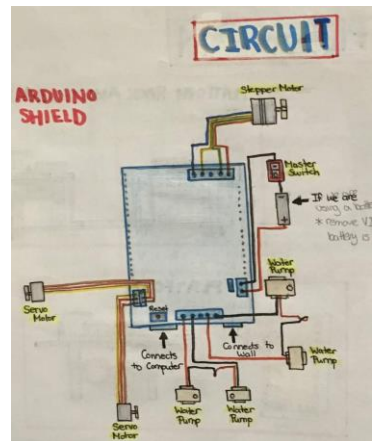 CIRCUIT
ARDUINO
SHIELD
Stepper Motor
Master
Switch
If we are
using a
* remove
battery is
Water
Pump
Servo
Motor
Reset
Connects
to Computer
Connects to
Wall
Water
Pump
Water
Pump
Water
Pump
Servo
Motor